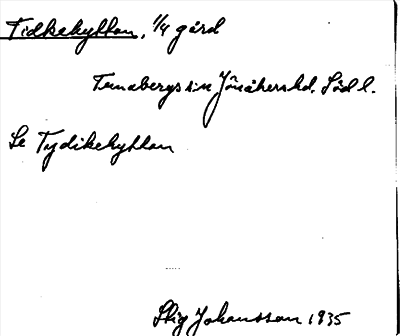 Tidkehyttan, 1/4 gård
Tunabergs sn Jönåkers hd. Söd l.
Se Tydikehyttan
Stig Johansson 1935